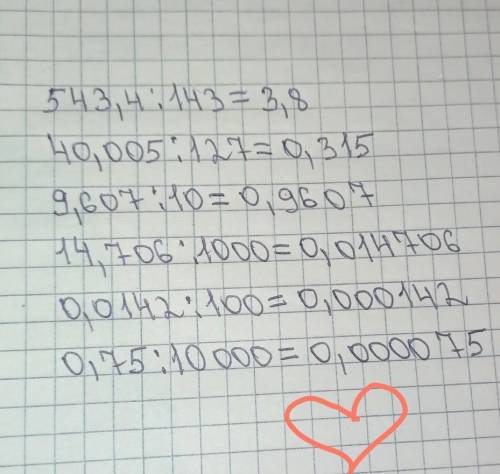 543,4:143=3,8
40,005:127=0,315
9,607:10=0,9607
14,706:1000=0,014706
0,0142:100=0,000142
0,75:10000=0,000075